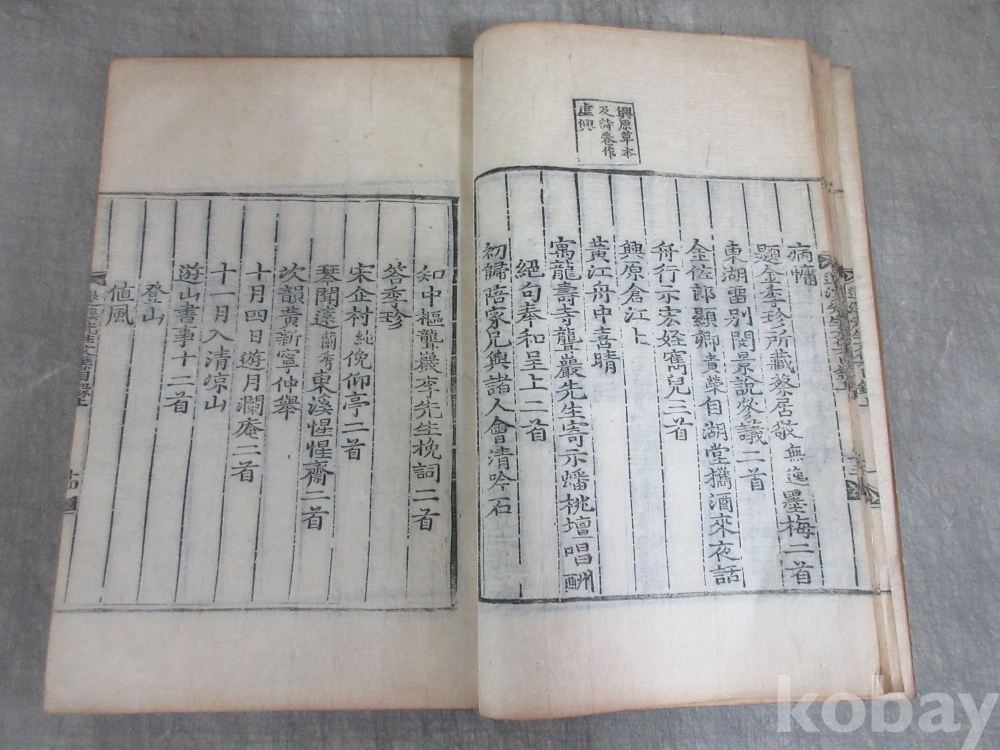 興原草本
及詩卷作
虛興
病慵
題金季珍所藏蔡居敬無逸墨梅二首
東湖留別閔景說參議二首
金佐郎顯卿貴榮自湖堂攜酒來夜話
舟行示宏姪寯兒三首
興原倉江上
黃江舟中喜晴
寓龍壽寺聾巖先生寄示蟠桃壇唱酬
絕句奉和呈上二首
初歸陪家兄與諸人會清吟石
知中樞聾巖李先生挽詞二首
答季珍
宋企村純俛仰亭二首
琴聞遠蘭秀東溪惺惺齋二首
次韻黃新寧仲舉
十月四日遊月瀾庵二首
十一月入清涼山
遊山書事十二首
登山
值風
十四
kobay